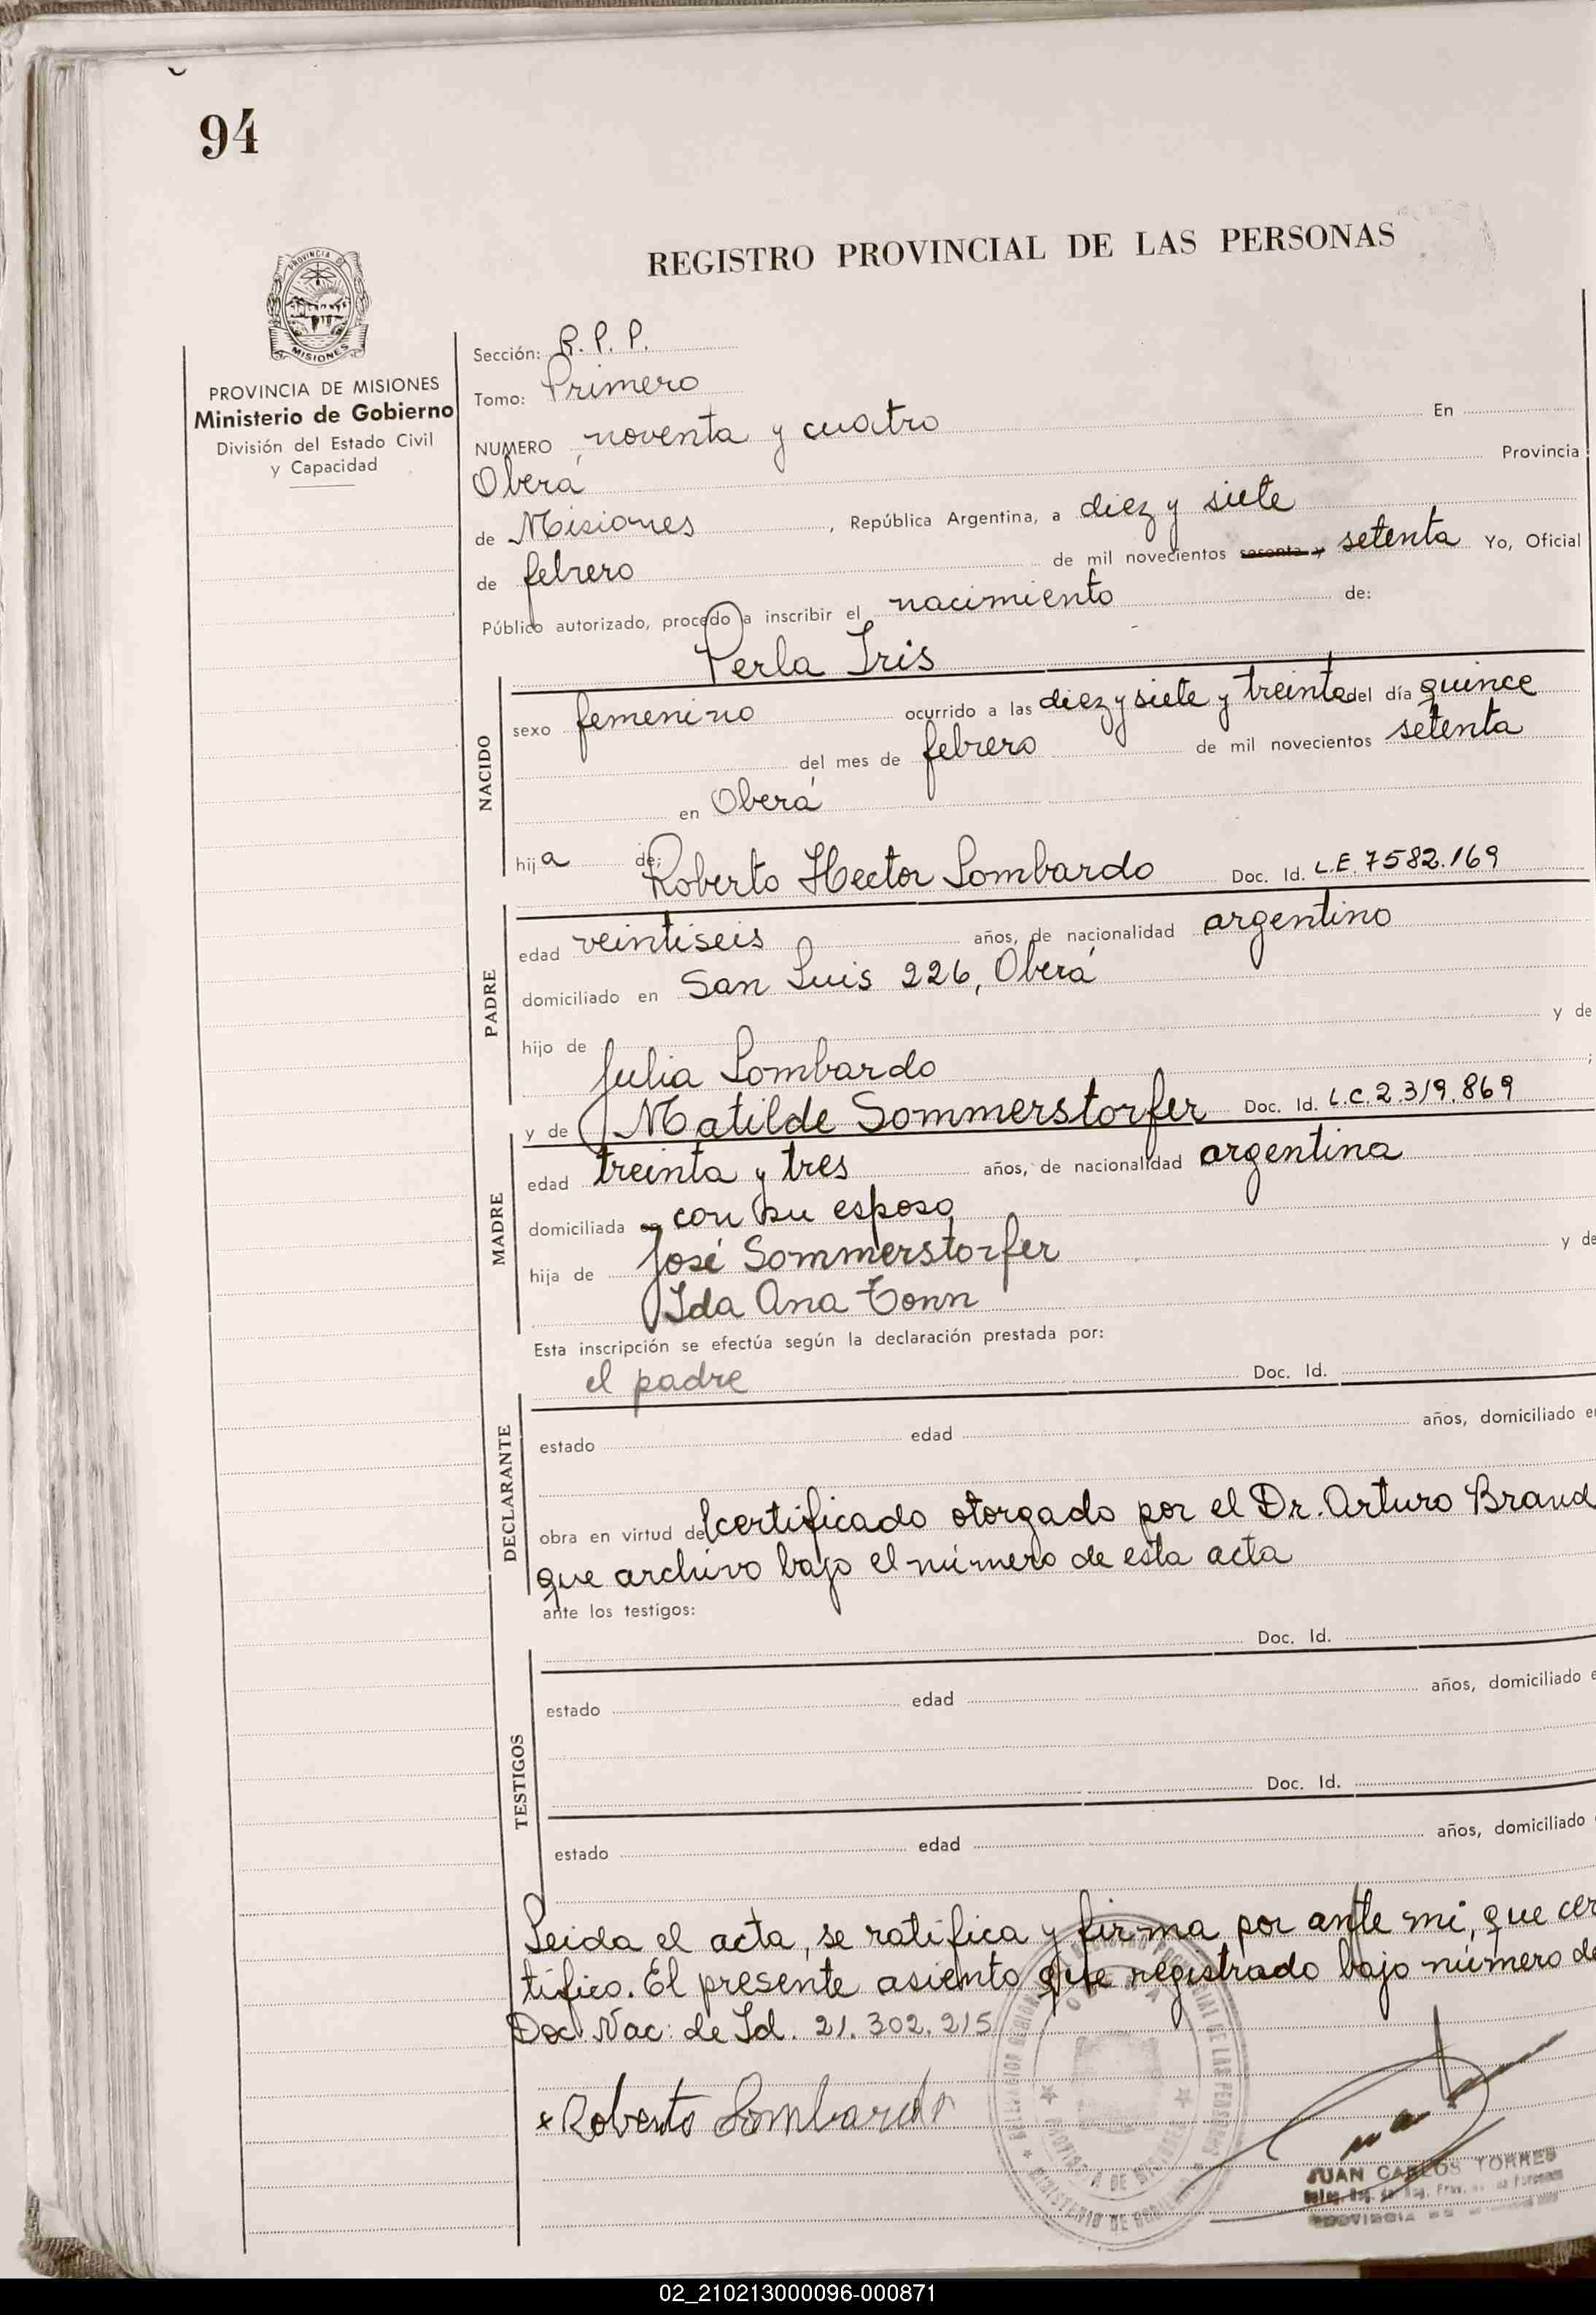 94
REGISTRO PROVINCIAL DE LAS PERSONAS
PROVINCIA DE
MISIONES
PROVINCIA DE MISIONES
Ministerio de Gobierno
División del Estado Civil
y Capacidad
Sección: R. P. P.
Tomo: Primero
NUMERO noventa y cuatro En
Oberá Provincia
de Misiones, República Argentina, a diez y siete
de febrero de mil novecientos sesenta y setenta Yo, Oficial
Público autorizado, procedo a inscribir el nacimiento de:
Perla Iris
NACIDO
sexo femenino ocurrido a las diez y siete y treinta del día quince
del mes de febrero de mil novecientos setenta
en Oberá
hija de: Roberto Hector Lombardo Doc. Id. L.E. 7582.169
PADRE
edad veintiseis años, de nacionalidad argentino
domiciliado en San Luis 226, Oberá
hijo de y de
Julia Lombardo ;
y de Matilde Sommerstorfer Doc. Id. L.C. 2.319.869
MADRE
edad treinta y tres años, de nacionalidad argentina
domiciliada en con su esposo
hija de José Sommerstorfer y de
Ida Ana Tonn
Esta inscripción se efectúa según la declaración prestada por:
el padre Doc. Id.
DECLARANTE
estado edad años, domiciliado en
obra en virtud del certificado otorgado por el Dr. Arturo Brand
que archivo bajo el número de esta acta
ante los testigos:
Doc. Id.
TESTIGOS
estado edad años, domiciliado e
Doc. Id.
estado edad años, domiciliado
Leida el acta, se ratifica y firma por ante mi, que cer
tifico. El presente asiento que registrado bajo número de
Doc. Nac: de Id. 21.302.215
x Roberto Lombardo
OBERA
PROVINCIA DE MISIONES
MINISTERIO DE GOBIERNO
JUAN CARLOS TORRES
PROVINCIA DE
02_210213000096-000871